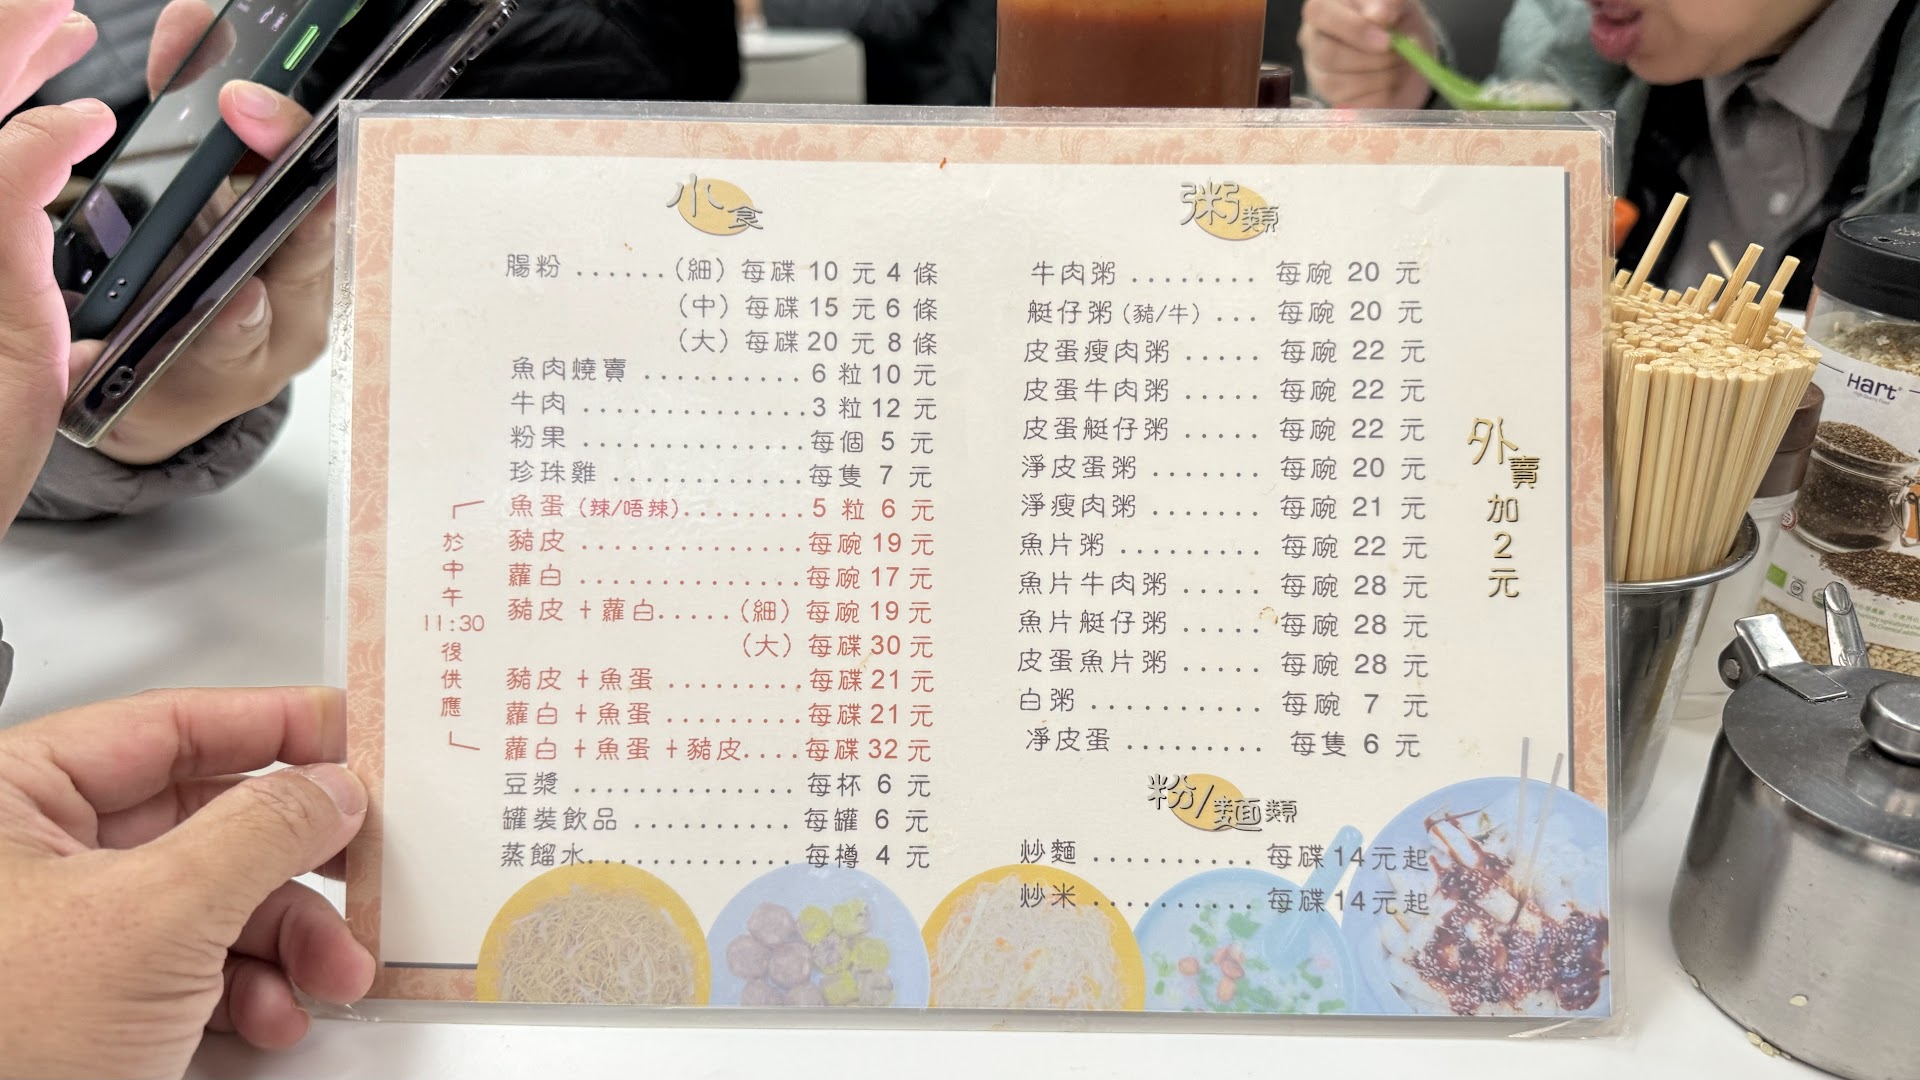 小食
腸粉 ...... (細) 每碟 10 元 4 條
(中) 每碟 15 元 6 條
(大) 每碟 20 元 8 條
魚肉燒賣 .......... 6 粒 10 元
牛肉 .............. 3 粒 12 元
粉果 .............. 每個 5 元
珍珠雞 ............ 每隻 7 元
於中午11:30後供應
魚蛋 (辣/唔辣)........ 5 粒 6 元
豬皮 .............. 每碗 19 元
蘿白 .............. 每碗 17 元
豬皮 + 蘿白.....(細) 每碗 19 元
(大) 每碟 30 元
豬皮 + 魚蛋 ......... 每碟 21 元
蘿白 + 魚蛋 ......... 每碟 21 元
蘿白 + 魚蛋 + 豬皮.... 每碟 32 元
豆漿 .............. 每杯 6 元
罐裝飲品 .......... 每罐 6 元
蒸餾水............. 每樽 4 元
粥類
牛肉粥 ........ 每碗 20 元
艇仔粥 (豬/牛) ... 每碗 20 元
皮蛋瘦肉粥 ..... 每碗 22 元
皮蛋牛肉粥 ..... 每碗 22 元
皮蛋艇仔粥 ..... 每碗 22 元
淨皮蛋粥 ....... 每碗 20 元
淨瘦肉粥 ....... 每碗 21 元
魚片粥 ......... 每碗 22 元
魚片牛肉粥 ..... 每碗 28 元
魚片艇仔粥 ..... 每碗 28 元
皮蛋魚片粥 ..... 每碗 28 元
白粥 ........... 每碗 7 元
凈皮蛋 ......... 每隻 6 元
外賣加2元
粉/麵類
炒麵 ........... 每碟 14元起
炒米 ........... 每碟 14元起
Hart